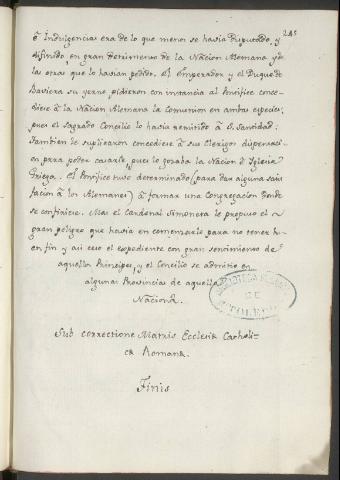 245
é Indulgencias era de lo que menos se havia Disputado, y
difinido, en gran detrimento de la Nacion Alemana y de
las otras que lo havian pedido. El emperador y el Duque de
Baviera su yerno pidieron con instancia al Pontifice conce-
diese à la Nacion Alemana la Comunion en ambas especies,
pues el Sagrado Concilio lo havia remitido à S. Santidad.
Tambien le suplicaron concediese à sus Clerigos dispensaci-
on para poder casarse, pues lo gozaba la Nacion è Iglesia
Griega. El Pontifice tuvo determinado (para dar alguna satis-
facion à los Alemanes) à formar una Congregacion donde
se confiriese. Mas el Cardenal Simoneta le propuso el
gran peligro que havia en comenzarlo para no tener bu-
en fin y asi ceso el expediente con gran sentimiento de
aquellos Principes, y el Concilio se admitio en
algunas Provincias de aquella
Nacion.
BIBLIOTECA
DE
TOLEDO
Sub correctione Matris Ecclesiæ Catholi-
cæ Romanæ.
Finis